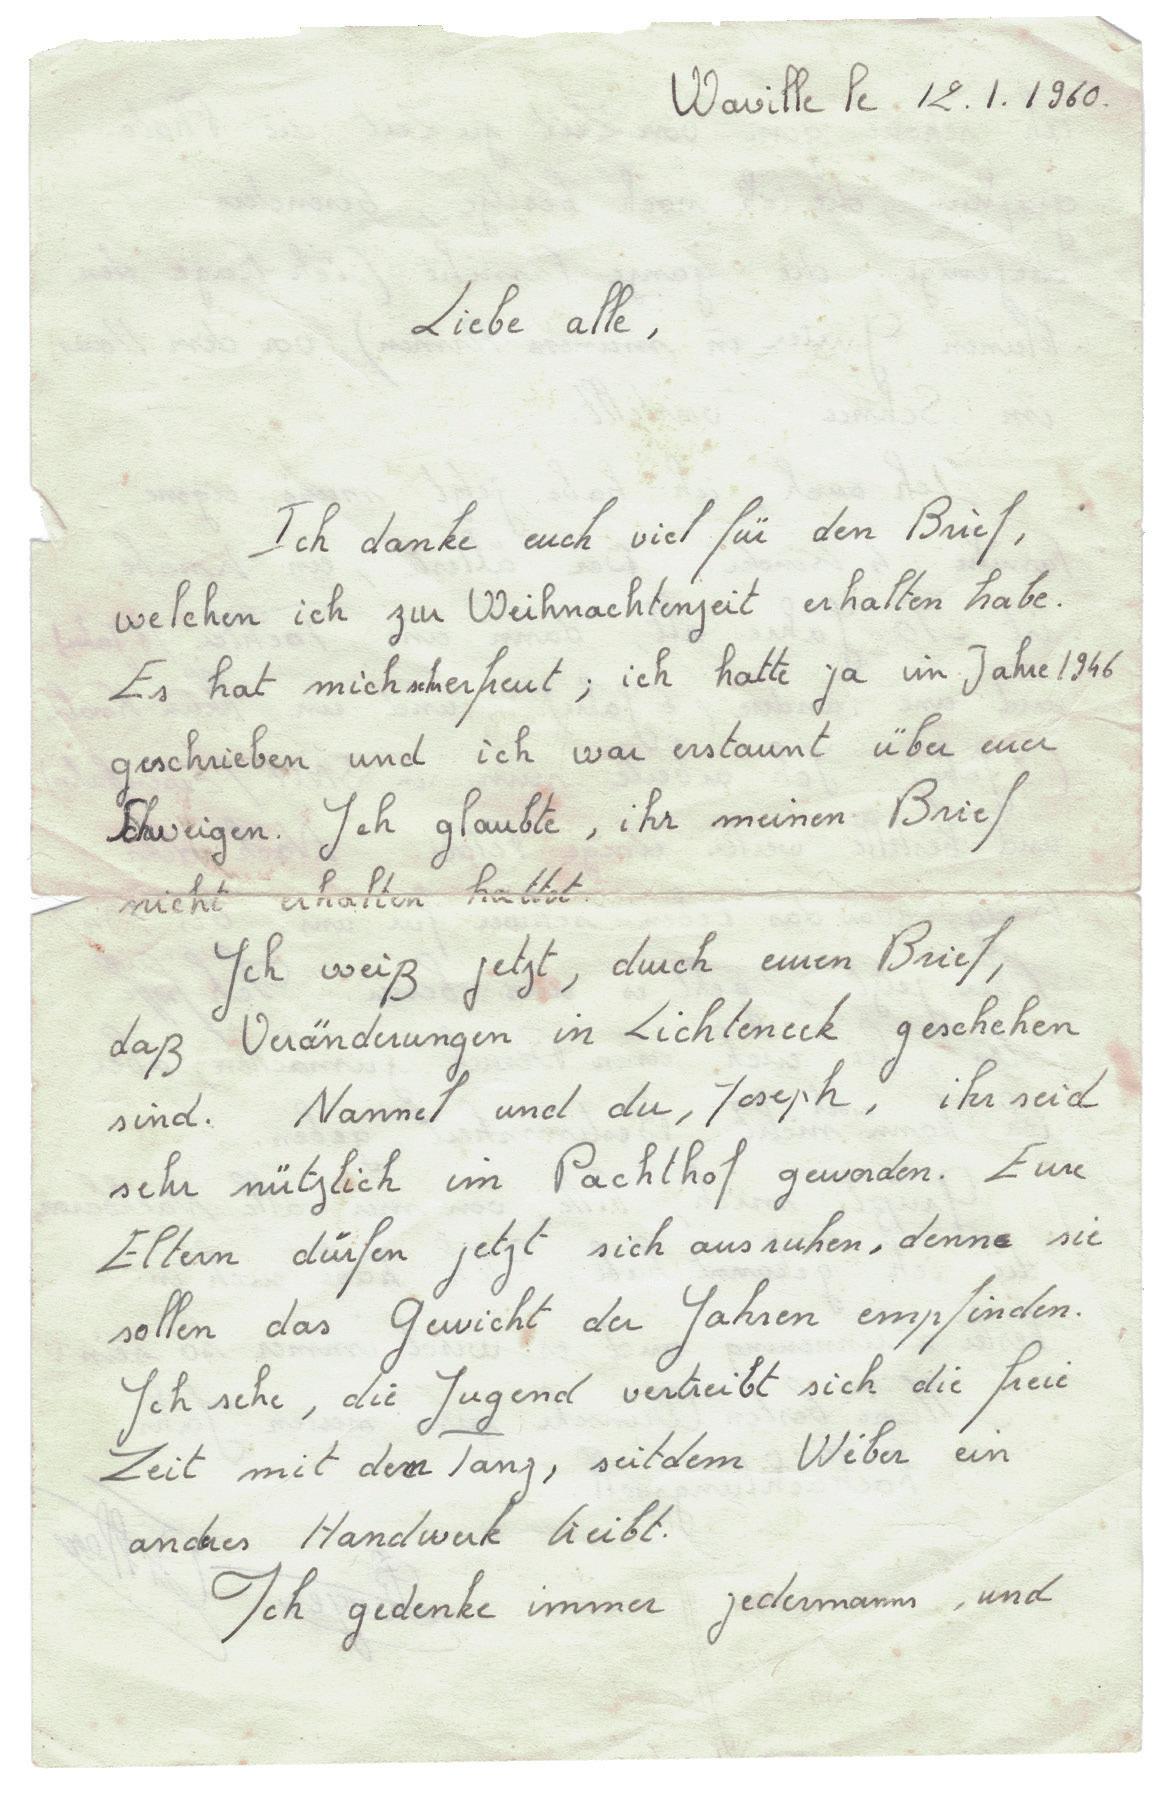 Waville le 12.1.1960.
Liebe alle,
Ich danke euch viel für den Brief,
welchen ich zur Weihnachtenzeit erhalten habe.
Es hat mich sehr erfreut ; ich hatte ja im Jahre 1946
geschrieben und ich war erstaunt über euer
Schweigen. Ich glaubte, ihr meinen Brief
nicht erhalten hattet.
Ich weiß jetzt, durch euren Brief,
daß Veränderungen in Lichteneck geschehen
sind. Nannel und du, Joseph, ihr seid
sehr nützlich im Pachthof geworden. Eure
Eltern dürfen jetzt sich ausruhen, denn sie
sollen das Gewicht der Jahren empfinden.
Ich sehe, die Jugend vertreibt sich die freie
Zeit mit den Tanz, seitdem Wéber ein
andres Handwerk treibt.
Ich gedenke immer jedermanns, und